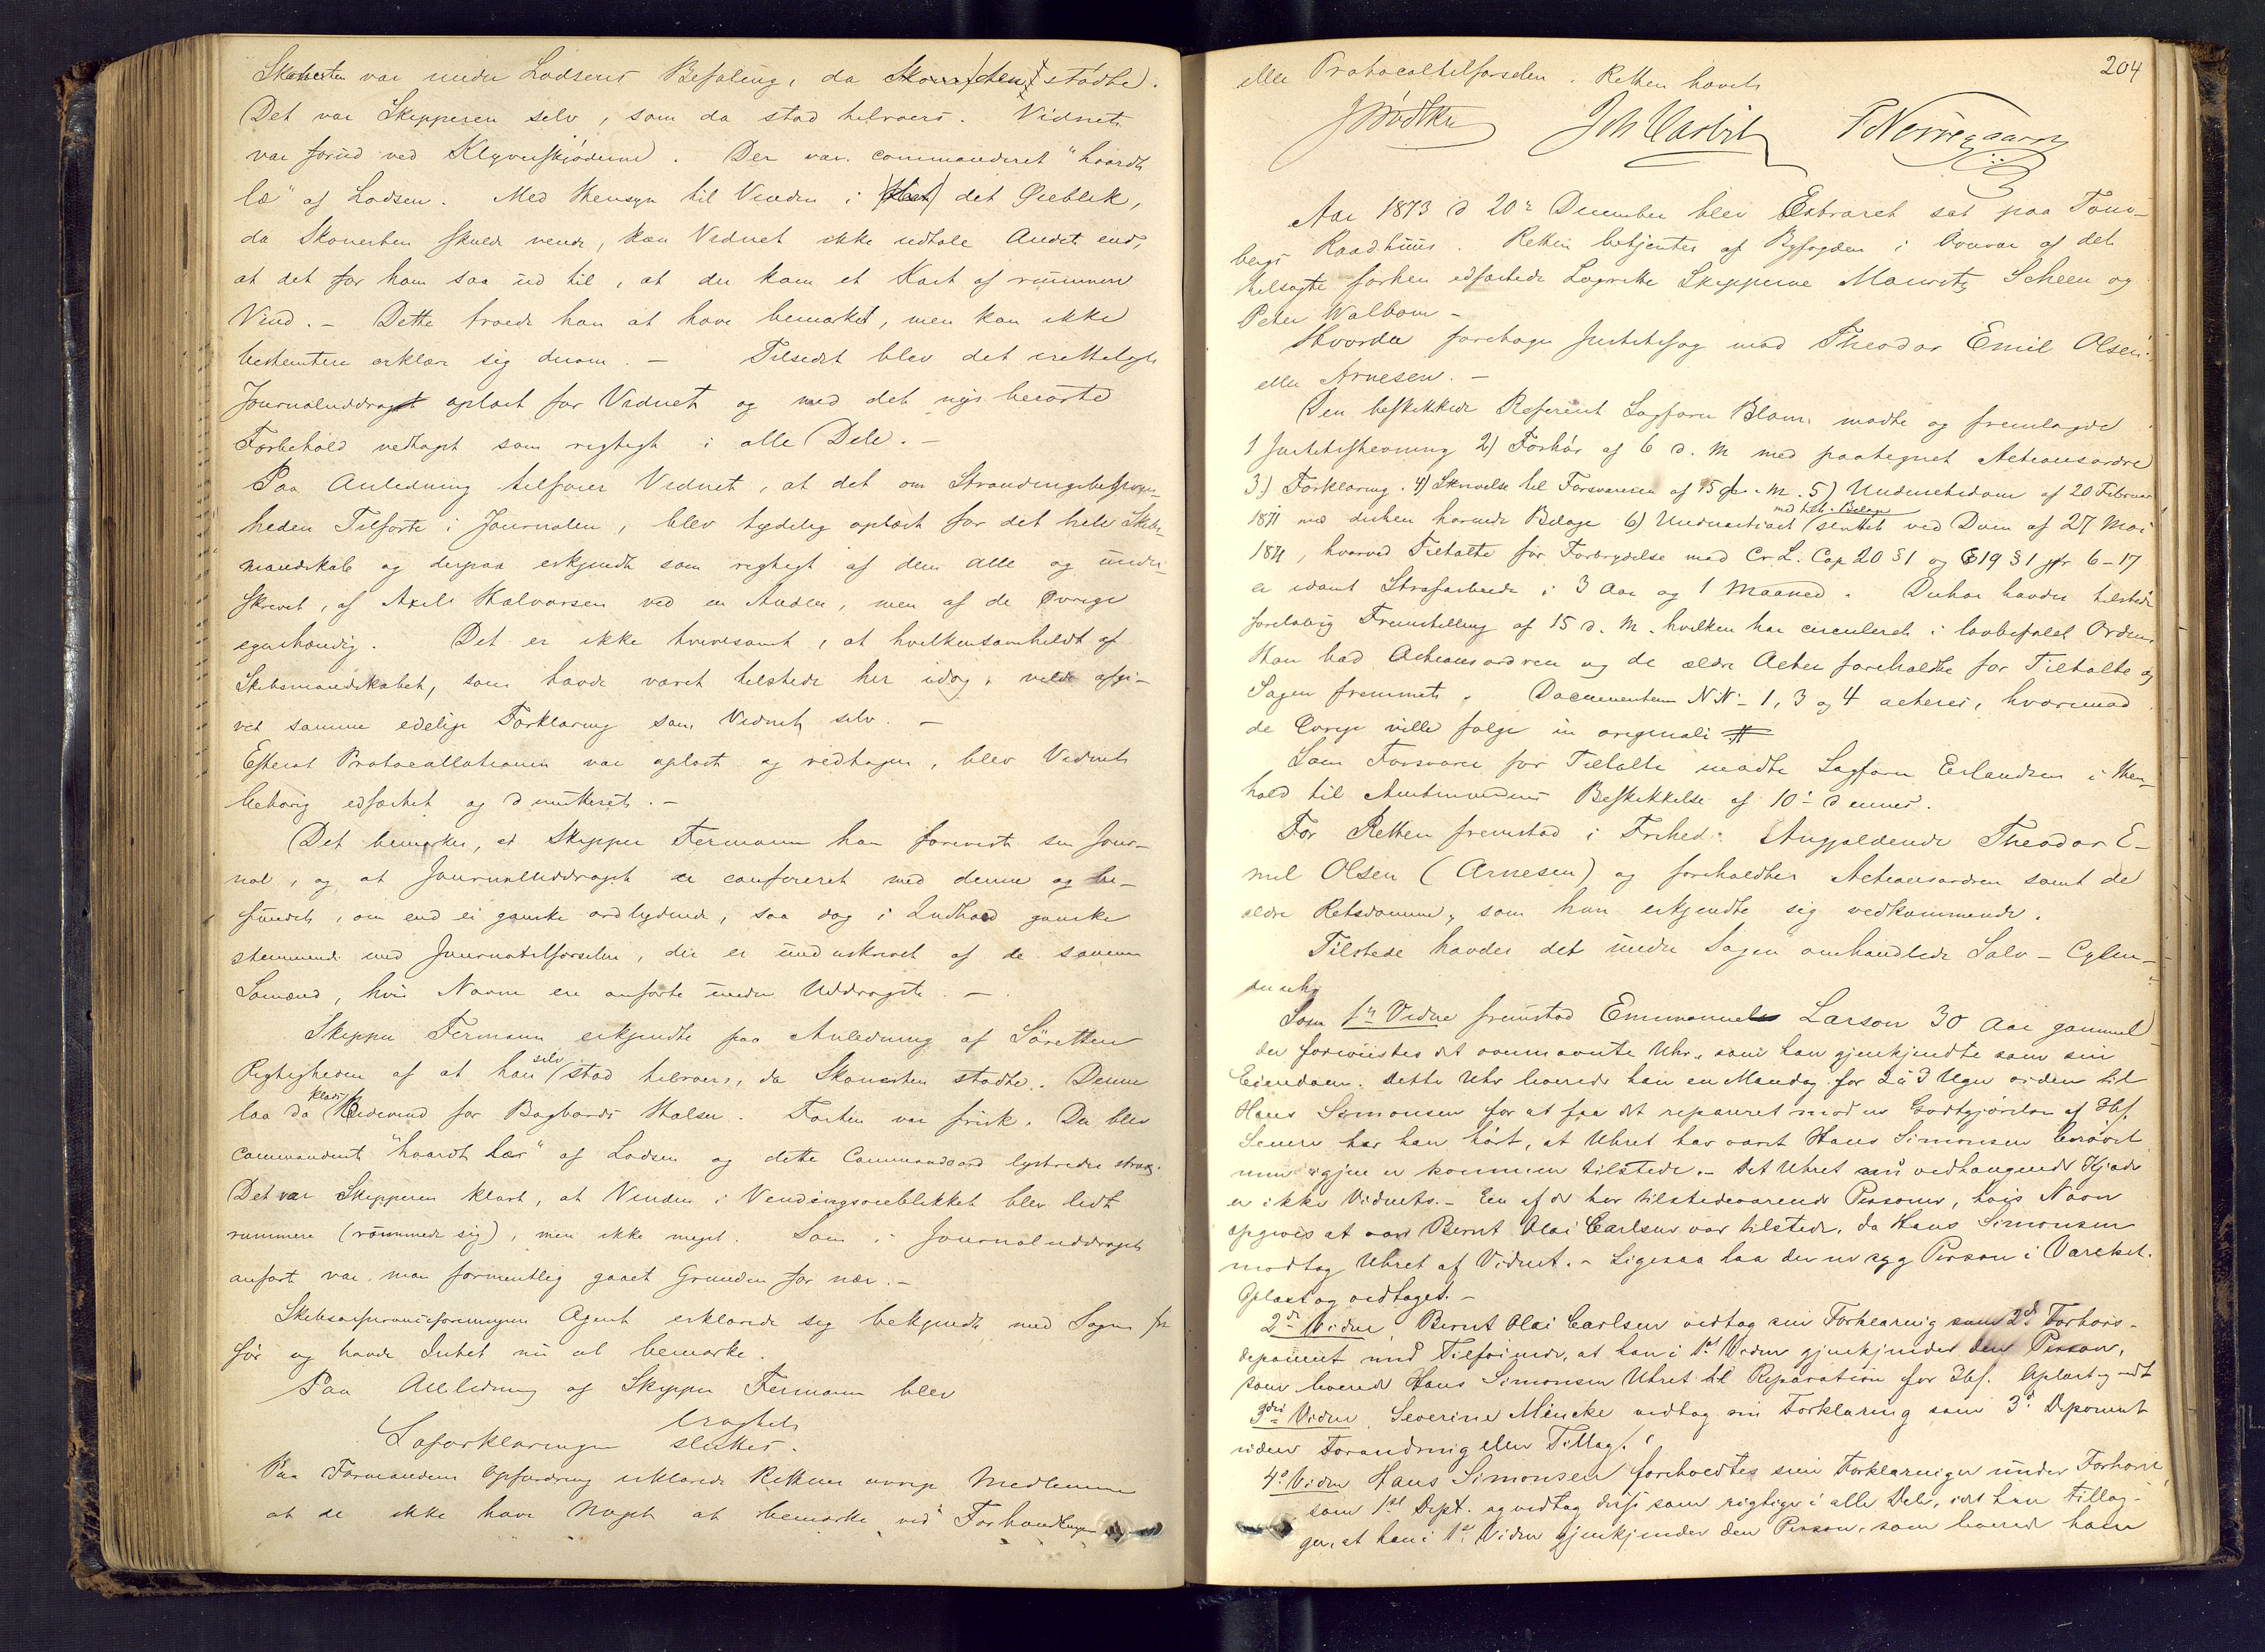 Skonerten var under Lodsens Befaling, da Skonnerten stødte.
Det var Skipperen selv, som da stod tilroers. Vidnet
var forud ved Klyverskjøderne. Der var commanderet "haardt
læ" af Lodsen. Med Hensyn til Vinden i det Øieblik,
da Skonerten skulde vende, kan Vidnet ikke udtale Andet end,
at det for ham saa ud til, at der kom et Kast af rummere
Vind. – Dette troede han at have bemærket, men kan ikke
bestemtere erklære sig derom. – Tilsidst blev det irettelagte
Journaluddraget oplæst for Vidnet og med det nys berørte
Forbehold vedtaget som rigtigt i alle Dele. –
Paa Anledning tilføier Vidnet, at det om Strandingsbegiven-
heden Tilførte i Journalen, blev tydelig oplæst for det hele Skibs-
mandskab og derpaa erkjendt som rigtigt af dem alle og under-
skrevet, af Axel Halvorsen ved en Anden, men af de Øvrige
egenhændig. Det er ikke tvivlsomt, at hvilkensomhelst af
Skibsmandskabet, som havde været tilstede her idag, vilde afgi-
vet samme edelige Forklaring som Vidnet selv. –
Efterat Protocollationen var oplæst og vedtagen, blev Vidnet
behørig edfæstet og dimitteret. –
Det bemærkes, at Skipper Fermann har forevist sin Jour-
nal, og at Journaluddraget er confereret med denne og be-
fundet, om end ei ganske ordlydende, saa dog i Indhold ganske
stemmende med Journaltilførselen, der er underskrevet af de samme
Sømænd, hvis Navne ere anførte under Uddraget. –
Skipper Fermann erkjendte paa Anledning af Søretten
Rigtigheden af at han selv stod tilroers, da Skonerten stødte. Denne
laa da klods Bidevind for Bagbords Halser. Farten var frisk. Der blev
commanderet "haardt læ" af Lodsen og dette Commandoord lystredes strax.
Det var Skipperen klart, at Vinden i Vendingsøieblikket blev lidt
rummere (rømmede sig), men ikke meget. Som i Journaluddraget
anført var man formentlig gaaet Grunden for nær. –
Skibsassuranceforeningens Agent erklærede sig bekjendt med Sagen fra
før og havde Intet nu at bemærke.
Paa Anledning af Skipper Fermann blev
Søforklaringen sluttet.
Paa Formandens Opfordring erklærede Rettens øvrige Medlemmer
at de ikke have Noget at bemærke ved Forhandlingen
204
eller Protocoltilførselen. Retten hævet
Aar 1873 d 20de December blev Extraret sat paa Tøns-
bergs Raadhuus. Retten betjentes af Byfogden i Overvær af det
tilsagte forhen edfæstede Lagrette Skipperne Mauritz Scheen og
Peter Walbom –
Hvorda foretoges Justitssag mod Theodor Emil Olsen
eller Arnesen. –
Den beskikkede Referent Sagfører Blom mødte og fremlagde
1 Justitsstevning 2) Forhør af 6 d. M med paategnet Actionsordre
3) Forklaring. 4) Skrivelse til Forsvareren af 15 d. M. 5) Underretsdom af 20 Februar
1871 med dertil hørende Bilage 6) Underretsact med tilh. Bilage sluttet ved Dom af 27 Mai
1871, hvorved Tiltalte for Forbrydelse mod Cr. L. Cap 20 §1 og C 19 §1 jfr 6-17
er idømt Strafarbeide i 3 Aar og 1 Maaned. Derhos havdes tilstede
foreløbig Fremstilling af 15 d. M. hvilken har circuleret i lovbefalet Orden.
Han bad Actionsordren og de ældre Acter foreholdte for Tiltalte og
Sagen fremmet. Documenterne NNr 1, 3 og 4 acteres, hvorimod
de Øvrige ville følge in originali
Som Forsvarer for Tiltalte mødte Sagfører Erlandsen i Hen-
hold til Amtmandens Beskikkelse af 10de dennes.
For Retten fremstod i Frihed: Angjældende Theodor E-
mil Olsen (Arnesen) og foreholdtes Actionsordren samt de
ældre Retsdomme, som han erkjendte sig vedkommende.
Tilstede havdes det under Sagen omhandlede Sølv-Cylin-
deruhr.
Som 1ste Vidne fremstod Emmanuel Larson 30 Aar gammel
der forevistes det ovennævnte Uhr, som han gjenkjendte som sin
Eiendom. Dette Uhr leverede han en Mandag for 2 à 3 Uger siden til
Hans Simonsen for at faa det repareret mod en Godtgjørelse af 3 ß.
Senere har han hørt, at Uhret har været Hans Simonsen berøvet
men igjen er kommen tilstede. – Det Uhret nu vedhængende Kjæde
er ikke Vidnets. – En af de her tilstedeværende Personer, hvis Navn
opgives at være Bernt Olai Carlsen var tilstede, da Hans Simonsen
modtog Uhret af Vidnet. – Ligesaa laa der en syg Person i Værelset.
Oplæst og vedtaget. –
2det Vidne Bernt Olai Carlsen vedtog sin Forklaring som 2det Forhørs-
deponent med Tilføiende, at han i 1ste Vidne gjenkjender den Person,
som leverede Hans Simonsen Uhret til Reparation for 3 ß. Oplæst og vedt
3die Vidne Severine Mincke vedtog sin Forklaring som 3die Deponent
uden Forandring eller Tillæg.
4de Vidne Hans Simonsen foreholdtes sine Forklaringer under Forhøret
som 1ste Dept. og vedtog disse som rigtige i alle Dele, idet han tillæg-
ger, at han i 1ste Vidne gjenkjender den Person, som leverede ham